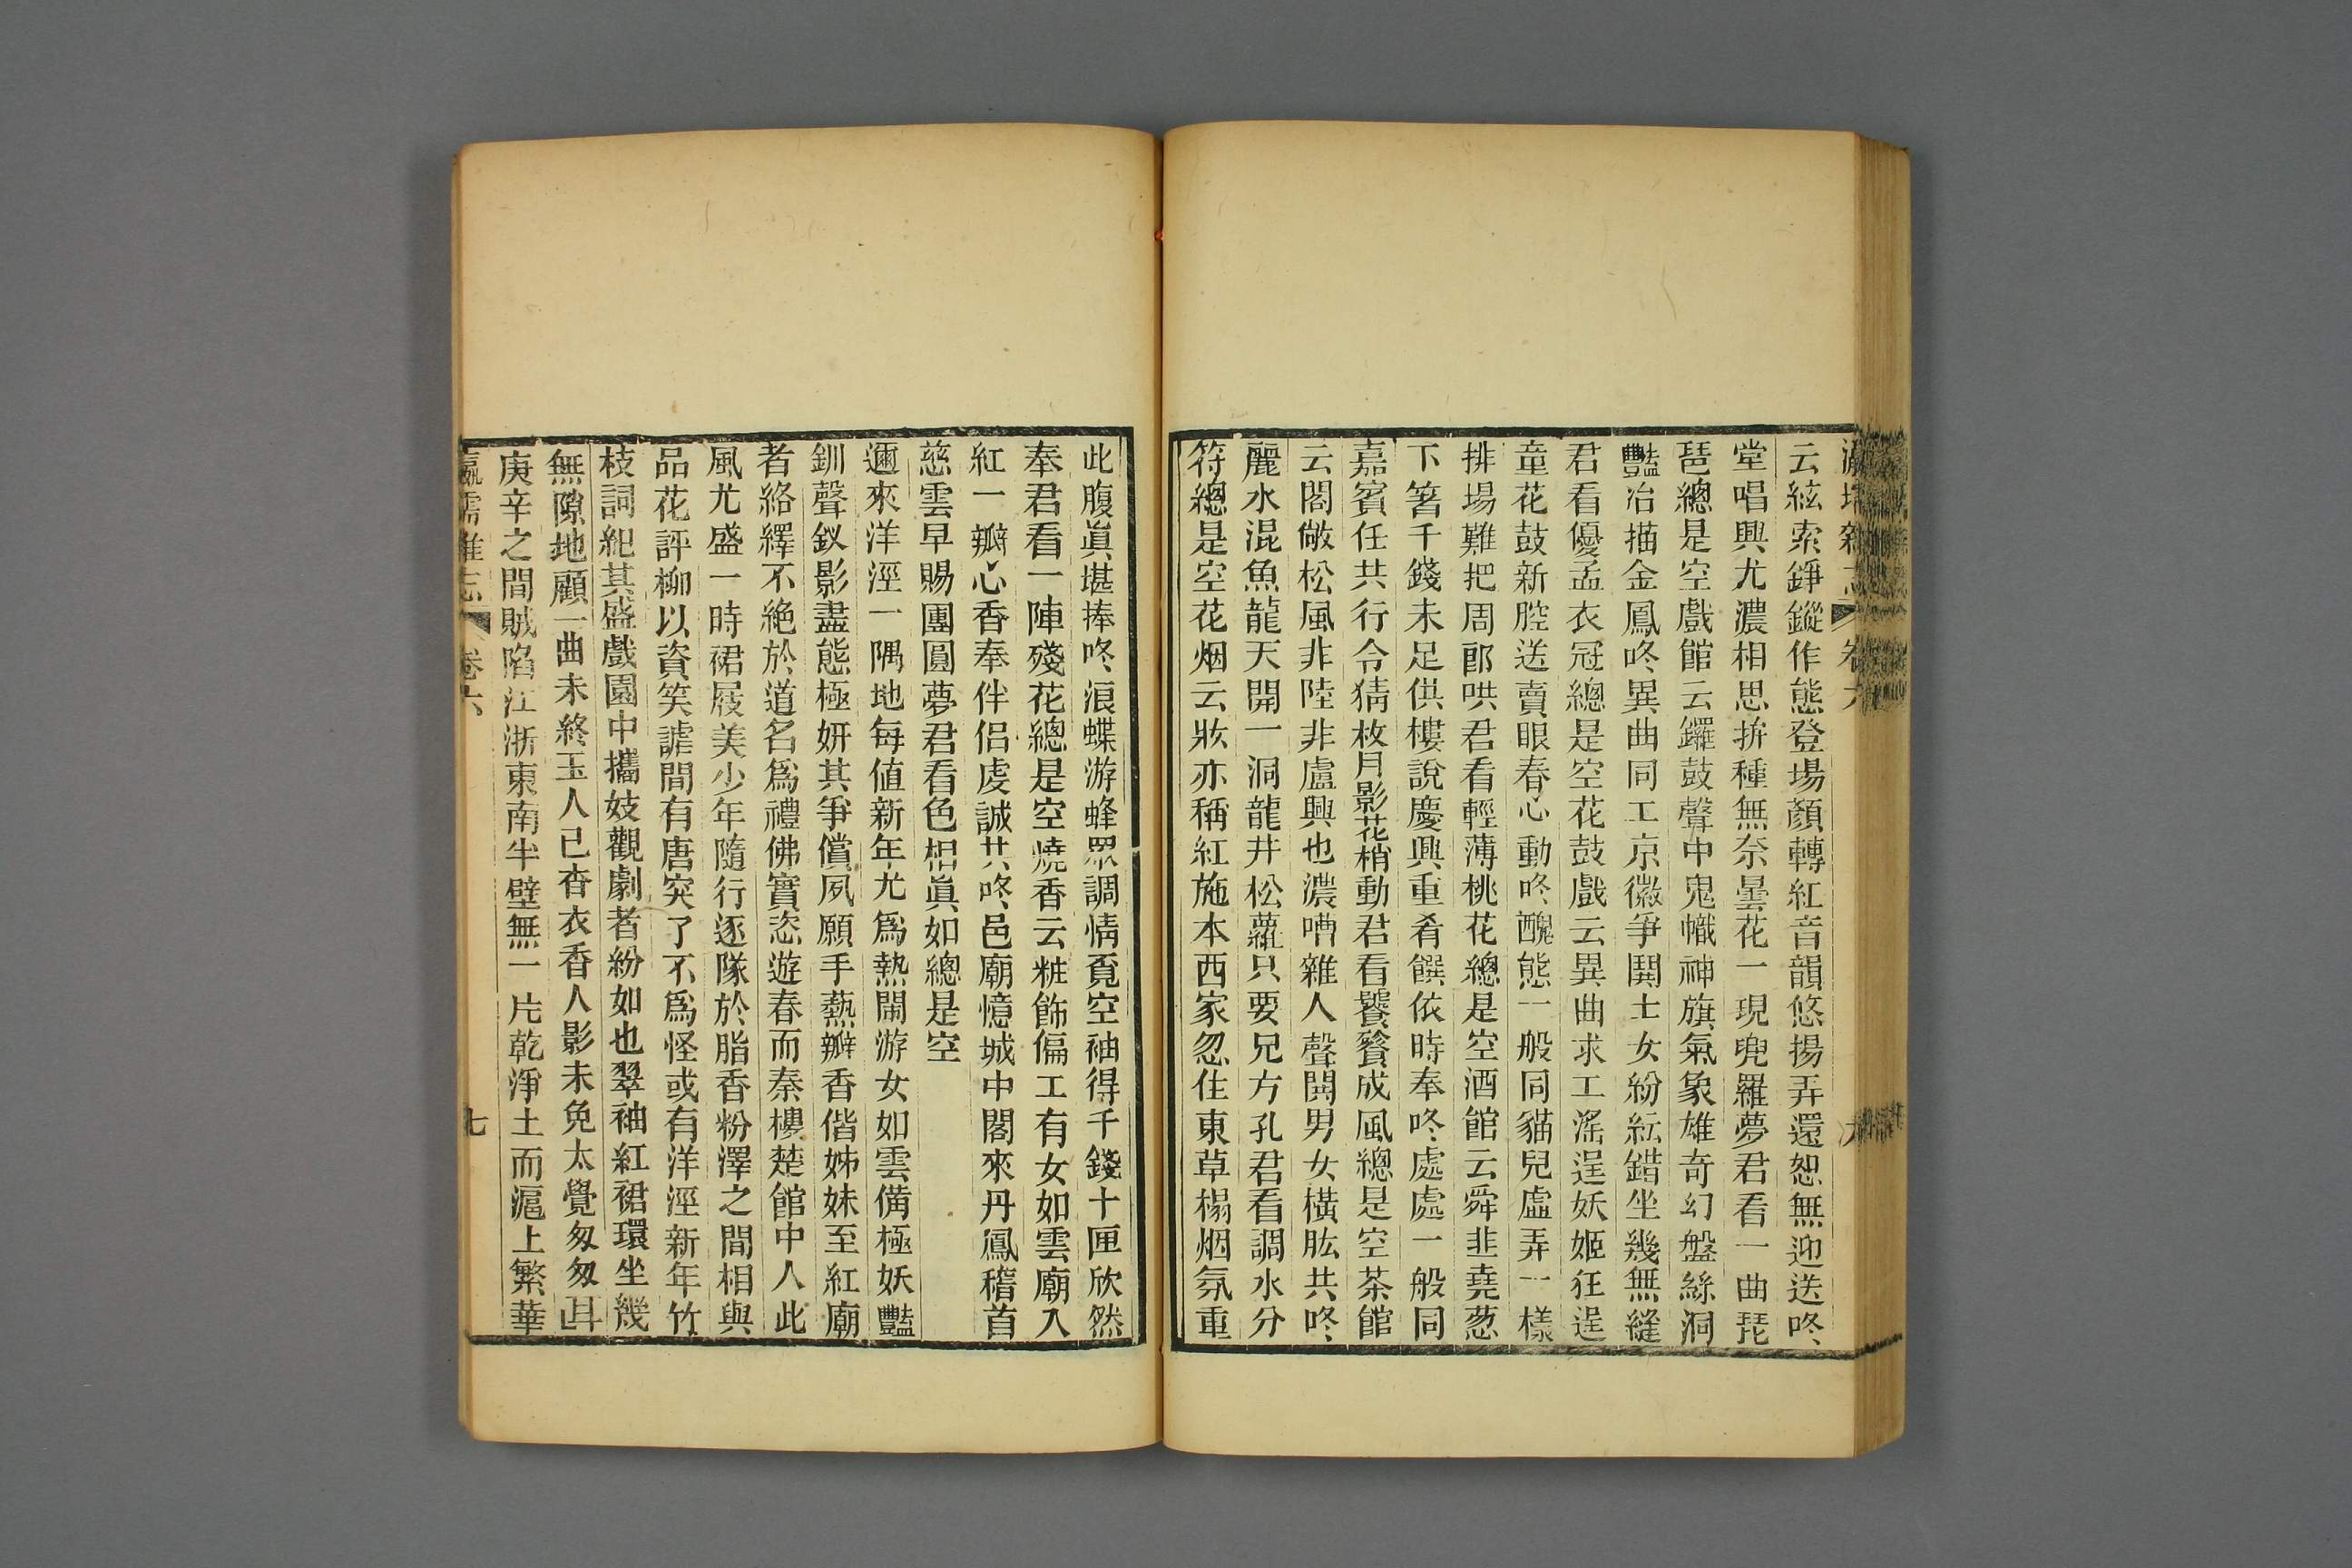 瀛壖雜志 卷六 六
云絃索錚鏦作態登場顏轉紅音韻悠揚弄還恕無迎送咚、
堂唱興尤濃相思拚種無奈曇花一現兜羅夢君看一曲琵
琶總是空戲館云鑼鼓聲中鬼幟神旗氣象雄奇幻盤絲洞
豔冶描金鳳咚異曲同工京徽爭鬪士女紛紜錯坐幾無縫
君看優孟衣冠總是空花鼓戲云異曲求工滛逞妖姬狂逞
童花鼓新腔送賣眼春心動咚醜態一般同貓兒虛弄一樣
排場難把周郎哄君看輕薄桃花總是空酒館云舜韭堯葱
下箸千錢未足供樓說慶興重肴饌依時奉咚處處一般同
嘉賓任共行令猜枚月影花梢動君看饕餮成風總是空茶館
云閣敞松風非陸非盧興也濃嘈雜人聲鬨男女橫肱共咚、
麗水混魚龍天開一洞龍井松蘿只要兄方孔君看調水分
符總是空花烟云妝亦稱紅施本西家忽住東草榻烟氛重
此腹眞堪捧咚浪蝶游蜂眾調情覔空袖得千錢十匣欣然
奉君看一陣殘花總是空燒香云粧飾偏工有女如雲廟入
紅一瓣心香奉伴侶虔誠共咚邑廟憶城中閣來丹鳳稽首
慈雲早賜團圓夢君看色相眞如總是空
邇來洋涇一隅地每値新年尤爲熱閙游女如雲備極妖豔
釧聲釵影盡態極妍其爭償夙願手爇瓣香偕姊妹至紅廟
者絡繹不絶於道名爲禮佛實恣遊春而秦樓楚館中人此
風尤盛一時裙屐美少年隨行逐隊於脂香粉澤之間相與
品花評柳以資笑謔間有唐突了不爲怪或有洋涇新年竹
枝詞紀其盛戲園中攜妓觀劇者紛如也翠袖紅裙環坐幾
無隙地顧一曲未終玉人已杳衣香人影未免太覺匆匆耳
庚辛之間賊陷江浙東南半壁無一片乾淨土而滬上繁華
瀛壖雜志 卷六 七